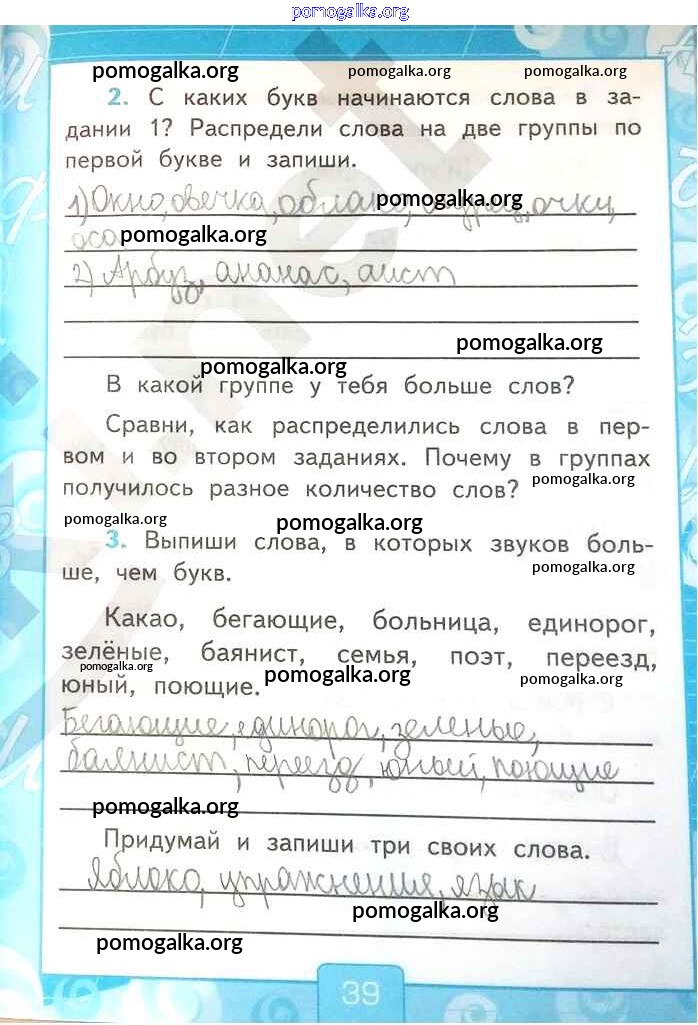 pomogalka.org
pomogalka.org pomogalka.org pomogalka.org
2. С каких букв начинаются слова в за-
дании 1? Распредели слова на две группы по
первой букве и запиши.
1) Окно, овечка, облако, pomogalka.org очки,
осо pomogalka.org
2) Арбуз, ананас, аист
pomogalka.org
pomogalka.org
В какой группе у тебя больше слов?
Сравни, как распределились слова в пер-
вом и во втором заданиях. Почему в группах
получилось разное количество слов? pomogalka.org
pomogalka.org pomogalka.org
3. Выпиши слова, в которых звуков боль-
ше, чем букв. pomogalka.org
Какао, бегающие, больница, единорог,
зелёные, баянист, семья, поэт, переезд,
pomogalka.org
юный, поющие. pomogalka.org pomogalka.org
Бегающие, единорог, зеленые,
баянист, переезд, юный, поющие
pomogalka.org
Придумай и запиши три своих слова.
Яблоко, упражнения, язык
pomogalka.org
pomogalka.org
39